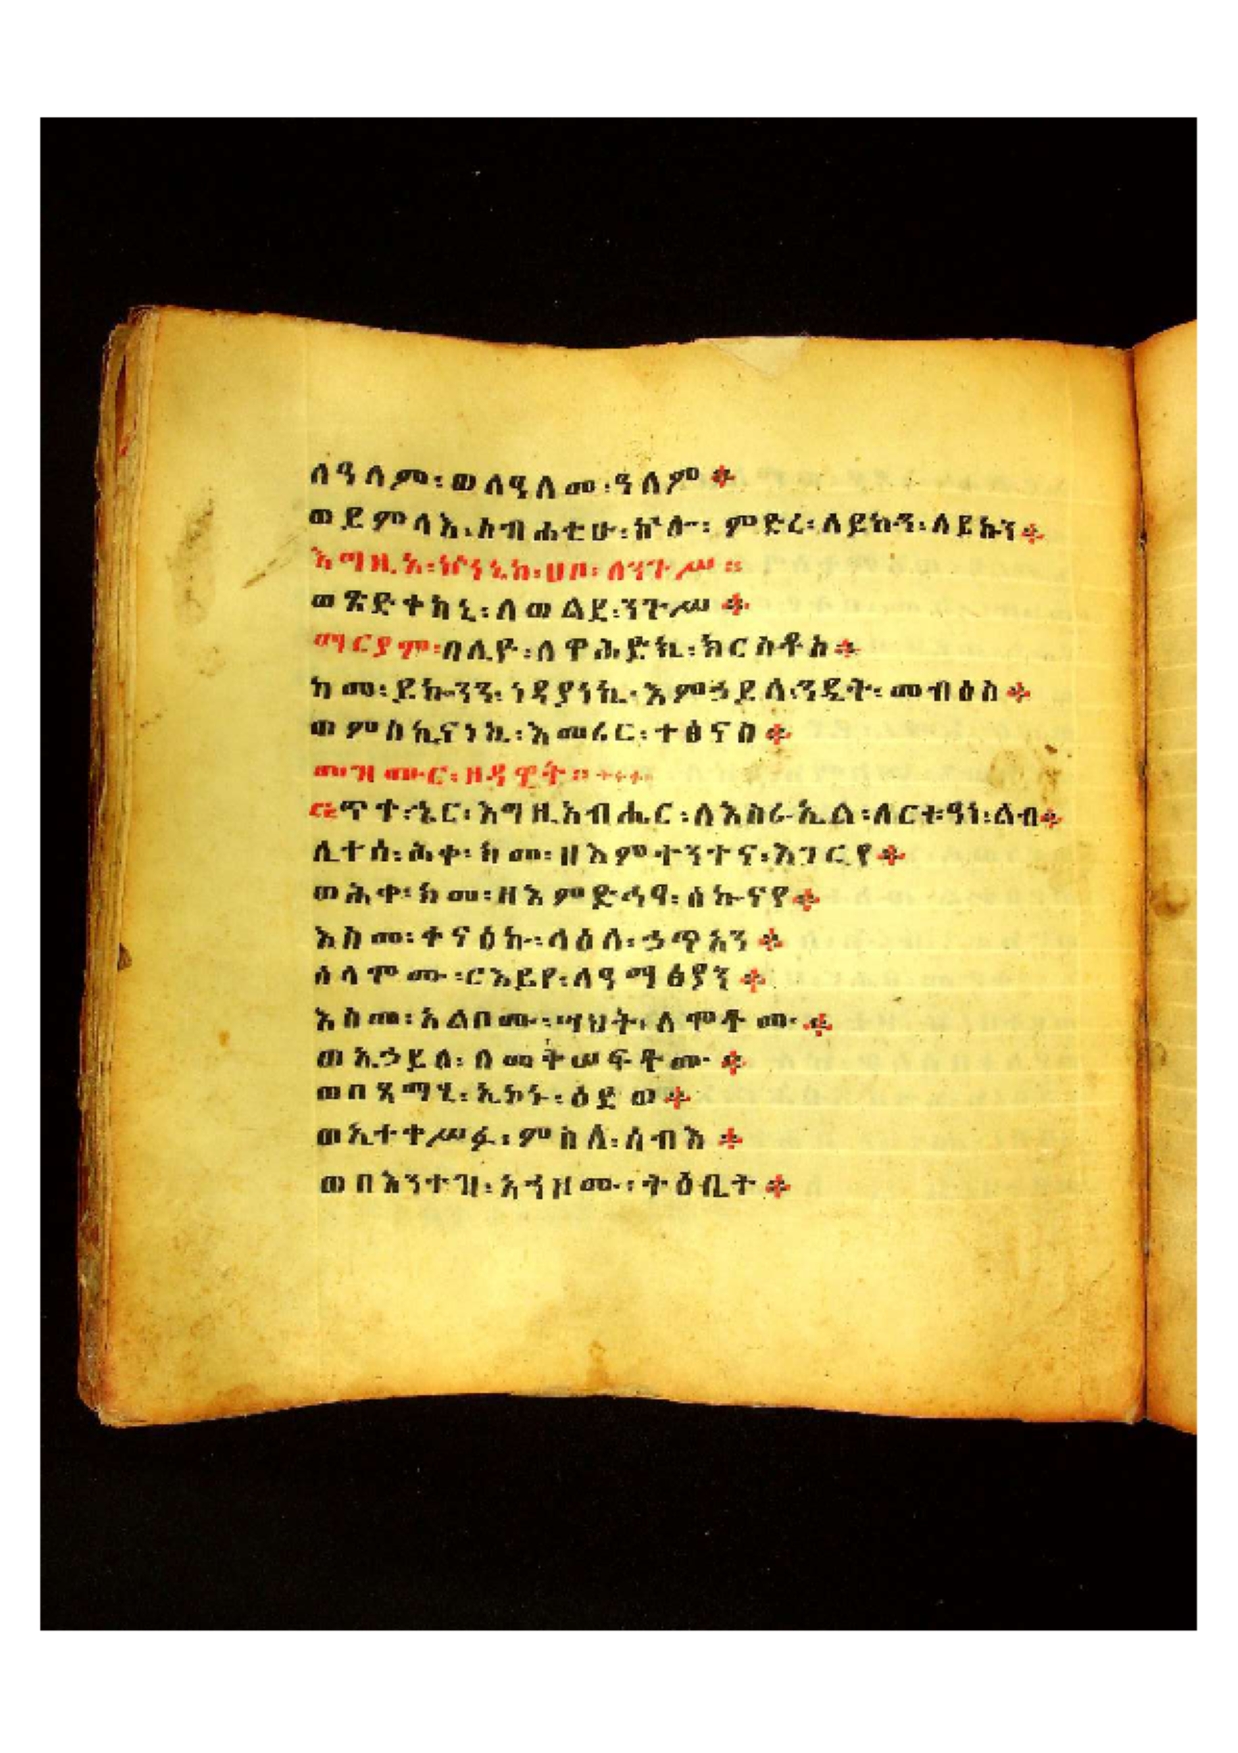 ለዓለም፡ወለዓለመ፡ዓለም።
ወይምላእ፡ስብሐቲሁ፡ኵሎ፡ምድረ፡ለይኩን፡ለይኩን።
እግዚአ፡ኵነኔከ፡ሀቦ፡ለንጉሥ።
ወጽድቀከኒ፡ለወልደ፡ንጉሥ።
ማርያም፡በሊዮ፡ለዋሕድኪ፡ክርስቶስ።
ከመ፡ይኰንን፡ነዳያነኪ፡እምኃይለ፡ንዴት፡መብዕስ።
ወምስኪናነኪ፡እመሪር፡ተፅናስ።
መዝሙር፡ዘዳዊት።
፸፪ጥተ፡ኄር፡እግዚአብሔር፡ለእስራኤል፡ለርቱዓነ፡ልብ።
ሊተሰ፡ሕቀ፡ከመ፡ዘእምተንተና፡እገርየ።
ወሕቀ፡ከመ፡ዘእምድኅፃ፡ሰኰናየ።
እስመ፡ቀናዕኩ፡ላዕለ፡ኃጥአን።
ሰላሞሙ፡ርእይየ፡ለዓማፅያን።
እስመ፡አልቦሙ፡ሣህት፡ለሞቶሙ።
ወኢኃይለ፡ለመትሠፍቶሙ።
ወበጻማሂ፡ኢኮኑ፡ዕደወ።
ወኢተቀሥፉ፡ምስለ፡ሰብእ።
ወበእንተዝ፡አኀዞሙ፡ትዕቢት።